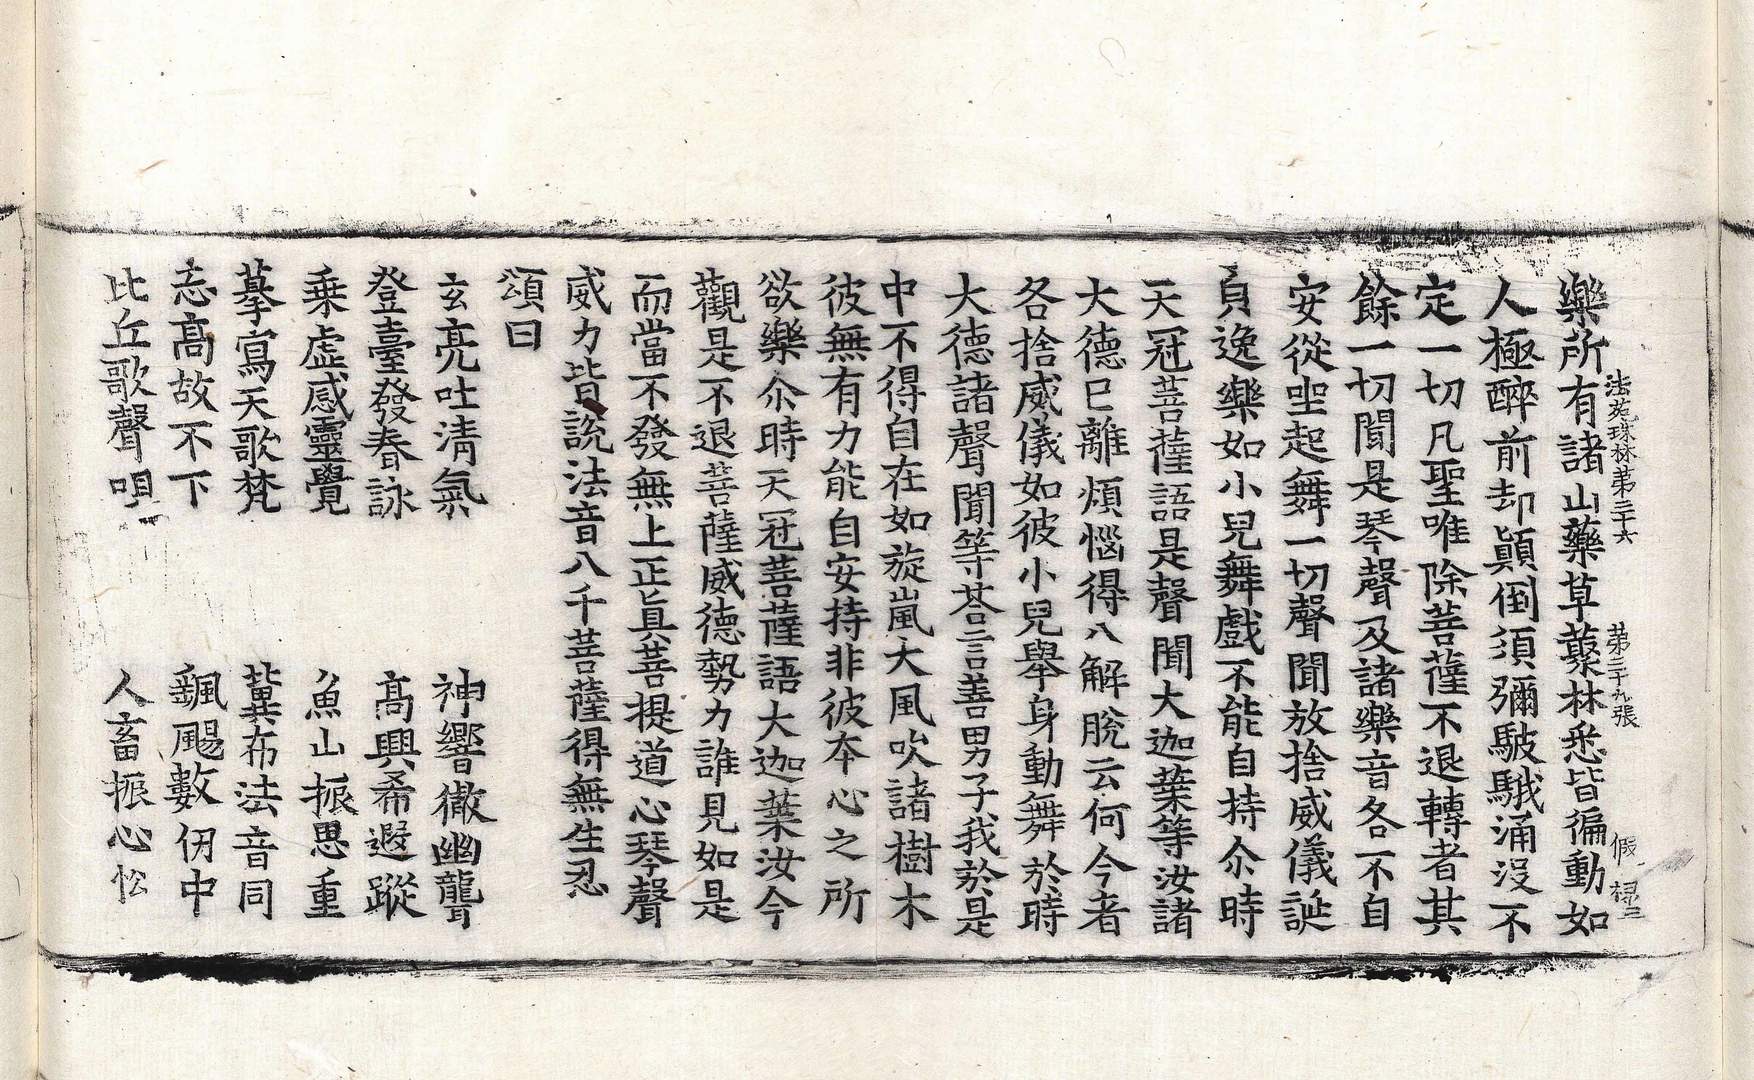 法苑珠林第三十六 第三十九張 假 禄三
樂所有諸山藥草藂林悉皆徧動如
人極醉前却顛倒須彌駊騀涌沒不
定一切凡聖唯除菩薩不退轉者其
餘一切聞是琴聲及諸樂音各不自
安從坐起舞一切聲聞放捨威儀誕
貟逸樂如小兒舞戲不能自持尒時
天冠菩薩語是聲聞大迦葉等汝諸
大德已離煩惱得八解脫云何今者
各捨威儀如彼小兒舉身動舞於時
大德諸聲聞等荅言善男子我於是
中不得自在如旋嵐大風吹諸樹木
彼無有力能自安持非彼本心之所
欲樂尒時天冠菩薩語大迦葉汝今
觀是不退菩薩威德勢力誰見如是
而當不發無上正真菩提道心琴聲
威力皆說法音八千菩薩得無生忍
頌曰
玄亮吐清氣 神響徹幽聾
登臺發春詠 高興希遐蹤
乗虛感靈覺 魚山振思重
摹寫天歌梵 冀布法音同
忘高故不下 飄颺數仞中
比丘歌聲唄 人畜振心忪